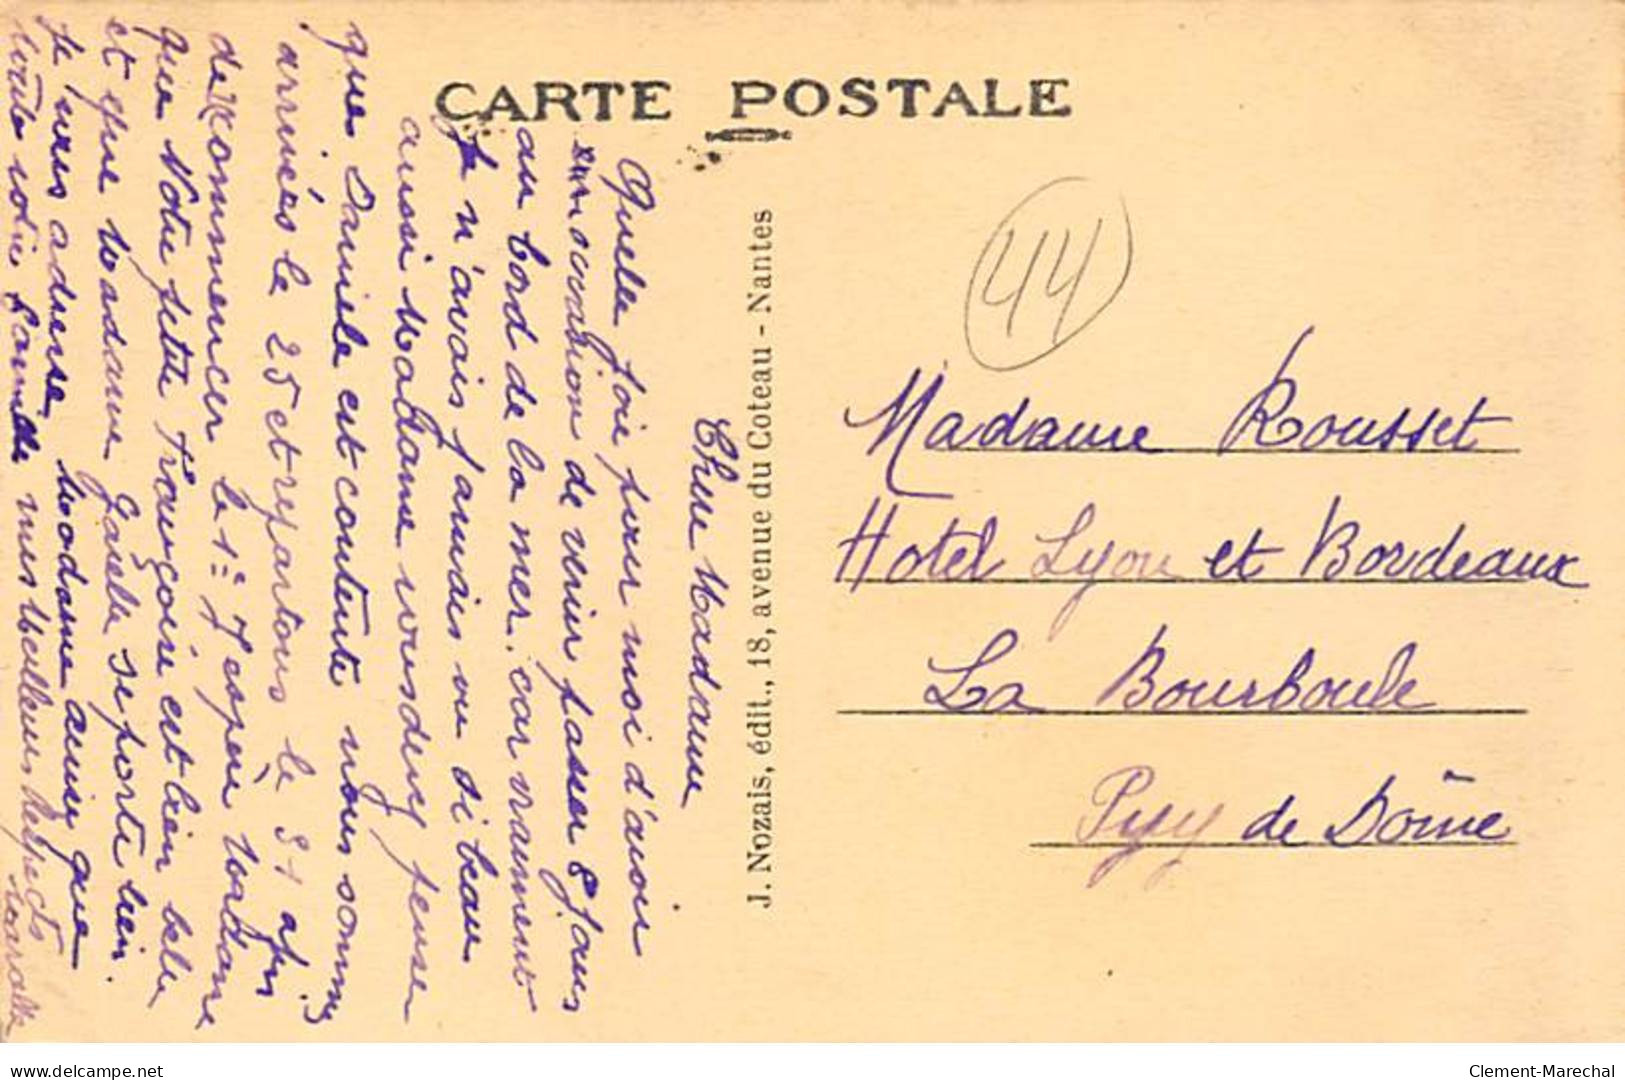 CARTE POSTALE
44
Chere Madame
Quelle joie pour moi d'avoir
occasion de venir passer 8 jours
au bord de la mer. car vraiment
je n'avais jamais vu si beau
aussi Madame vous deney penser
que Daniele est contente nous sommes
arrivés le 25 et repartons le 31 afin
de Kommencer le 1er J'espère Madame
que Votre petite Françoise est bien belle
et que Madame se porte bien.
Je vous adresse Madame ainsi que
toute votre Famille mes Meilleurs Respects
J. Nozais, édit., 18, avenue du Coteau - Nantes
Madame Rousset
Hotel Lyon et Bordeaux
La Bourboule
Puy de Dôme
www.delcampe.net
Clement-Marechal